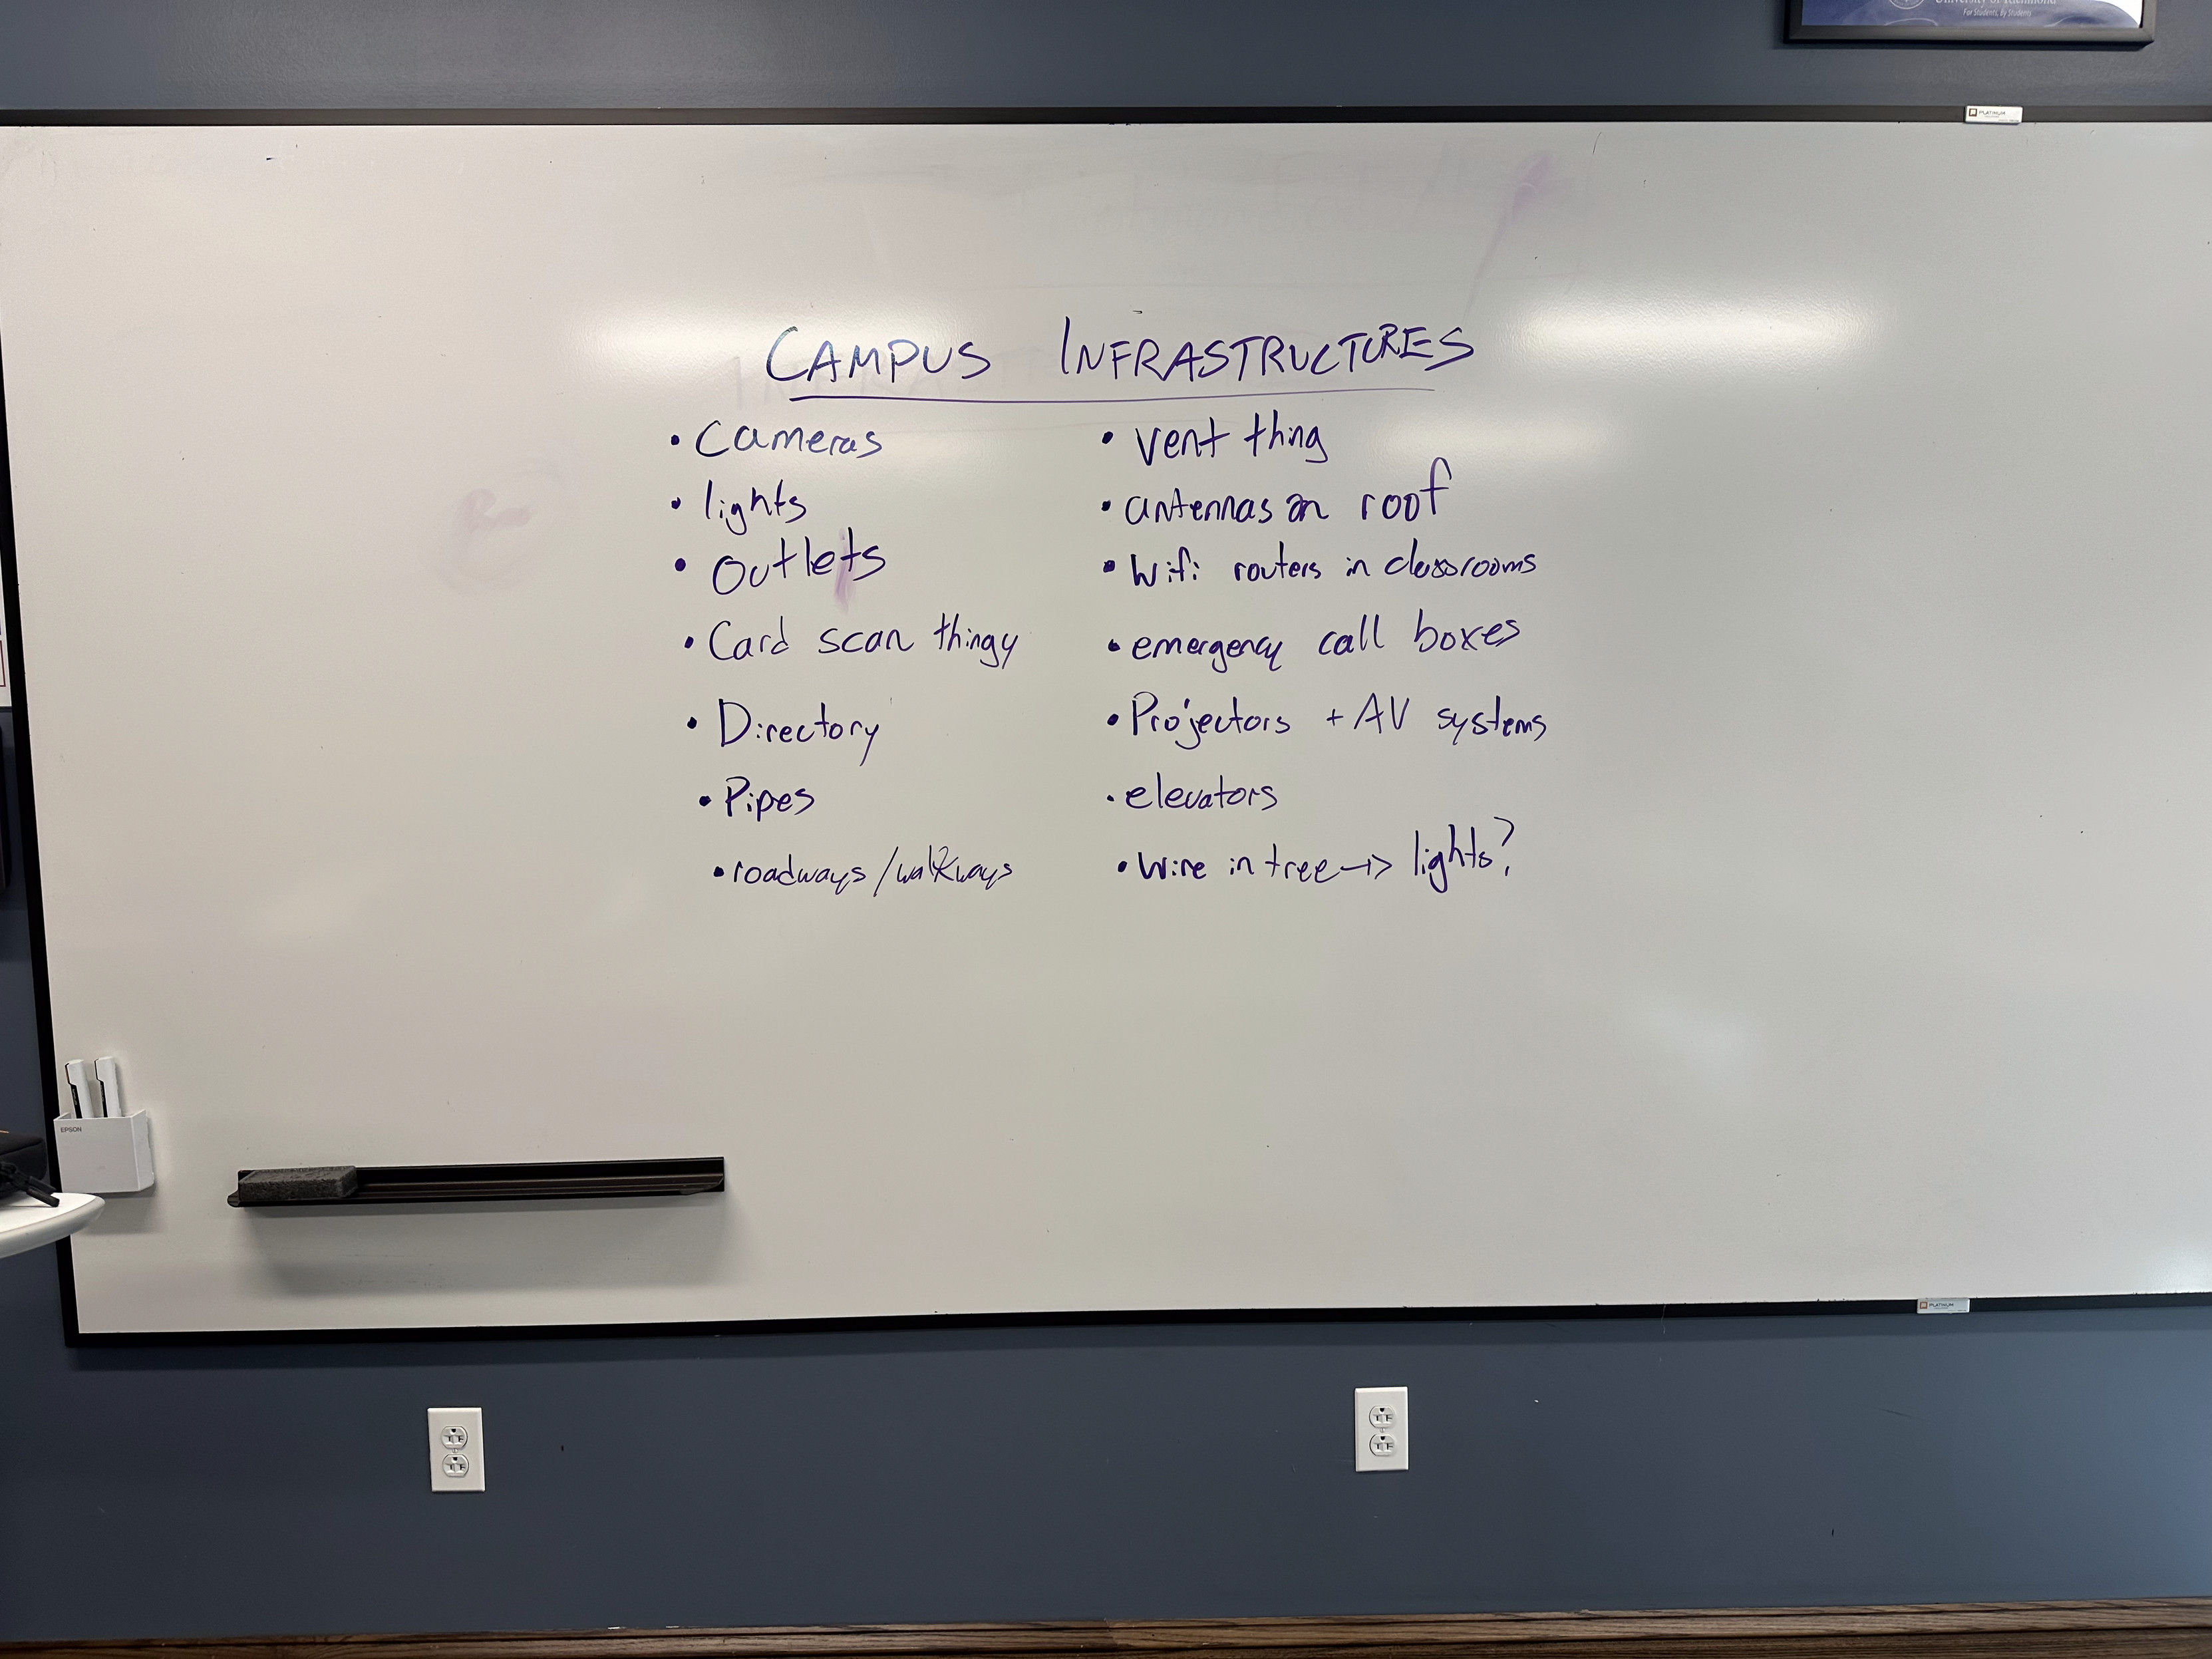 University of Richmond
For Students, By Students
PLATINUM
CAMPUS INFRASTRUCTURES
• Cameras
• lights
• Outlets
• Card scan thingy
• Directory
• Pipes
• roadways/walkways
• vent thing
• antennas on roof
• Wifi routers in classrooms
• emergency call boxes
• Projectors + AV systems
• elevators
• Wire in tree → lights?
EPSON
PLATINUM